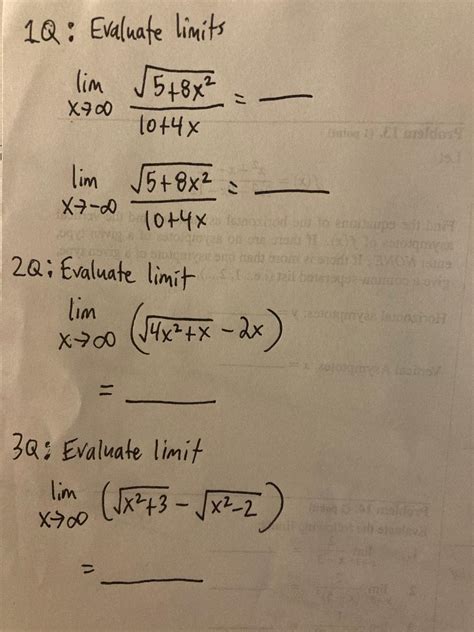 1Q: Evaluate limits
lim x→∞ √(5+8x²) / (10+4x) = ___
lim x→-∞ √(5+8x²) / (10+4x) = ___
2Q: Evaluate limit
lim x→∞ (√(4x²+x) - 2x)
= ___
3Q: Evaluate limit
lim x→∞ (√(x²+3) - √(x²-2))
= ___